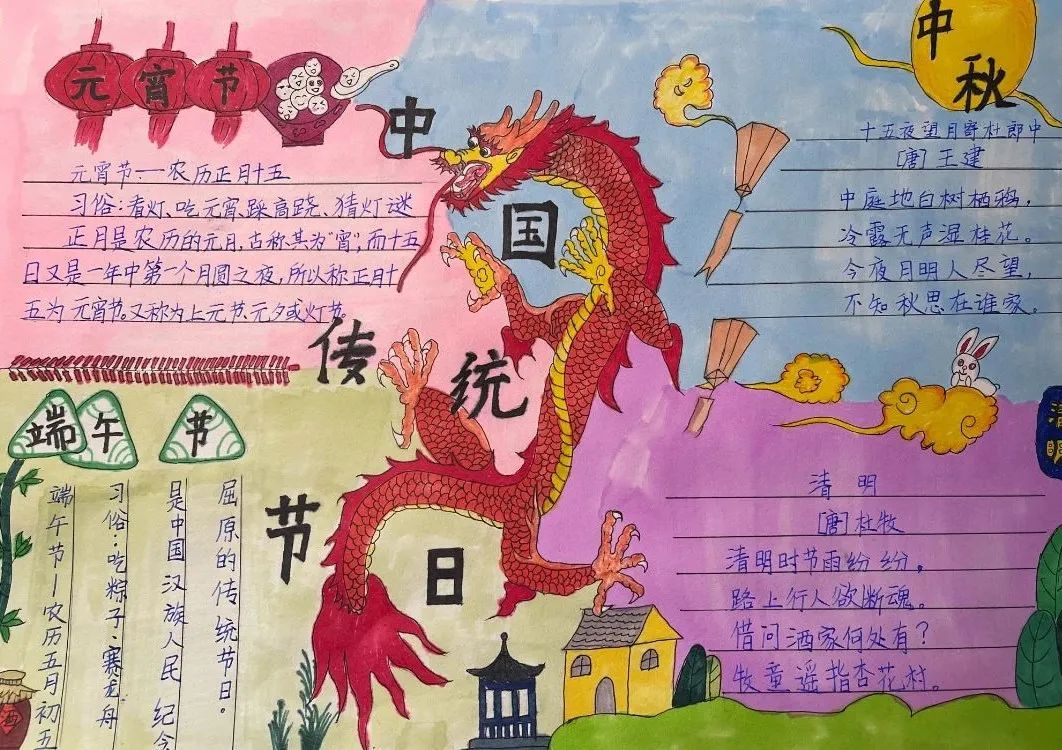 元宵节
元宵节——农历正月十五
习俗:看灯、吃元宵、踩高跷、猜灯谜
正月是农历的元月,古称其为“宵”,而十五
日又是一年中第一个月圆之夜,所以称正月十
五为元宵节。又称为上元节元夕或灯节。
中国传统节日
中秋
十五夜望月寄杜郎中
[唐]王建
中庭地白树栖鸦,
冷露无声湿桂花。
今夜月明人尽望,
不知秋思在谁家。
端午节
端午节—农历五月初五
习俗:吃粽子、赛龙舟
是中国汉族人民纪念
屈原的传统节日。
酒
清明
清明
[唐]杜牧
清明时节雨纷纷,
路上行人欲断魂。
借问酒家何处有?
牧童遥指杏花村。